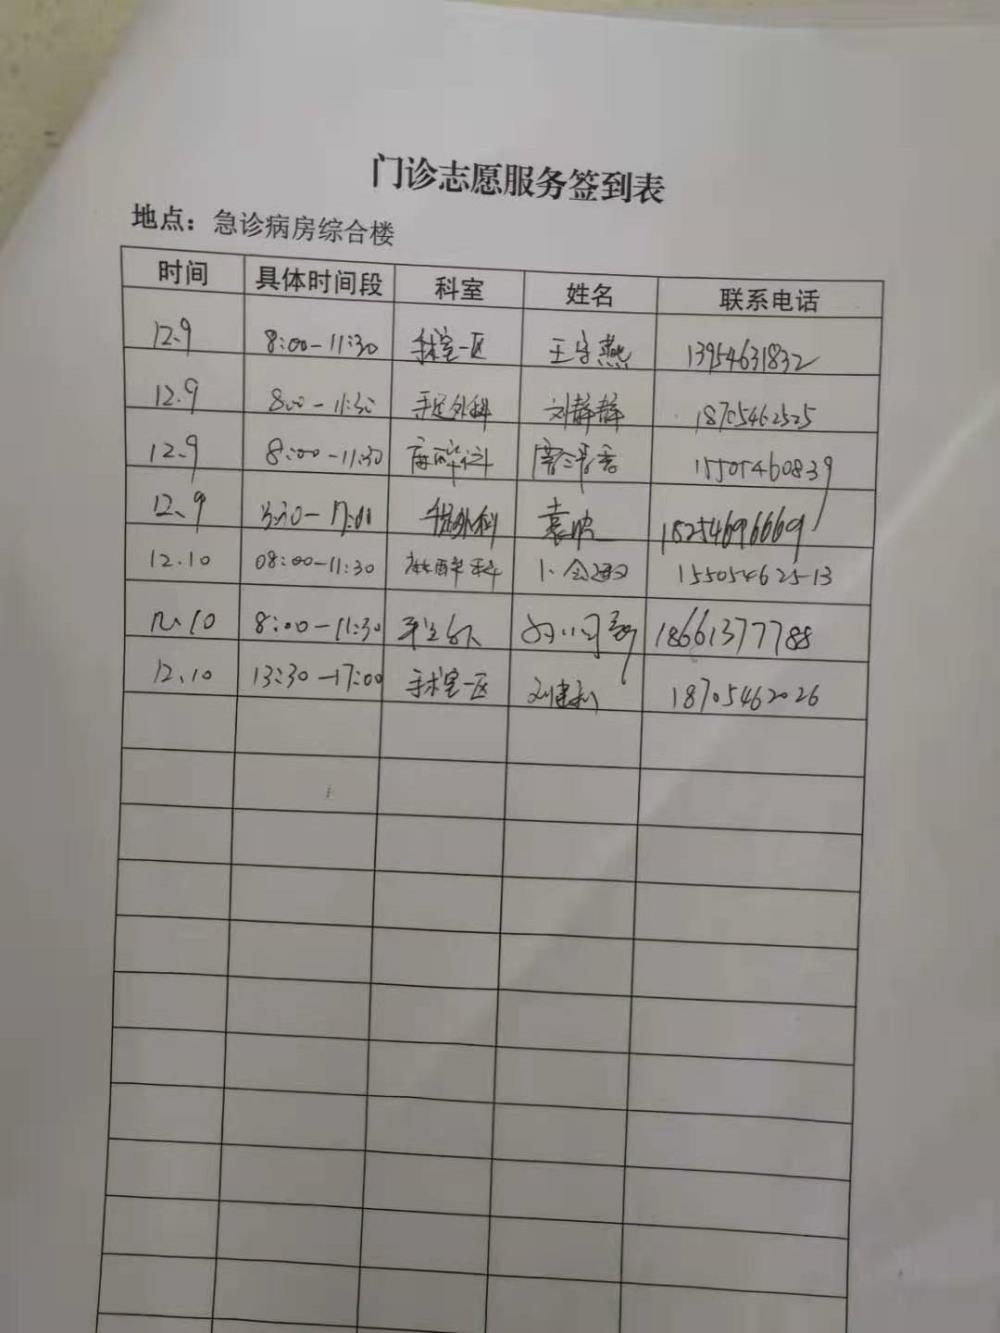 门诊志愿服务签到表
地点：急诊病房综合楼
时间 具体时间段 科室 姓名 联系电话
12.9 8:00-11:30 手术室一区 王字燕 13954631832
12.9 8:00-11:30 手足外科 刘静静 18705462525
12.9 8:00-11:30 麻醉科 15505460839
12.9 3:30-17:00 手足外科 18254696669
12.10 08:00-11:30 麻醉科 15505462513
12.10 8:00-11:30 手足外 18661377788
12.10 13:30-17:00 手术室一区 刘建利 18705462026